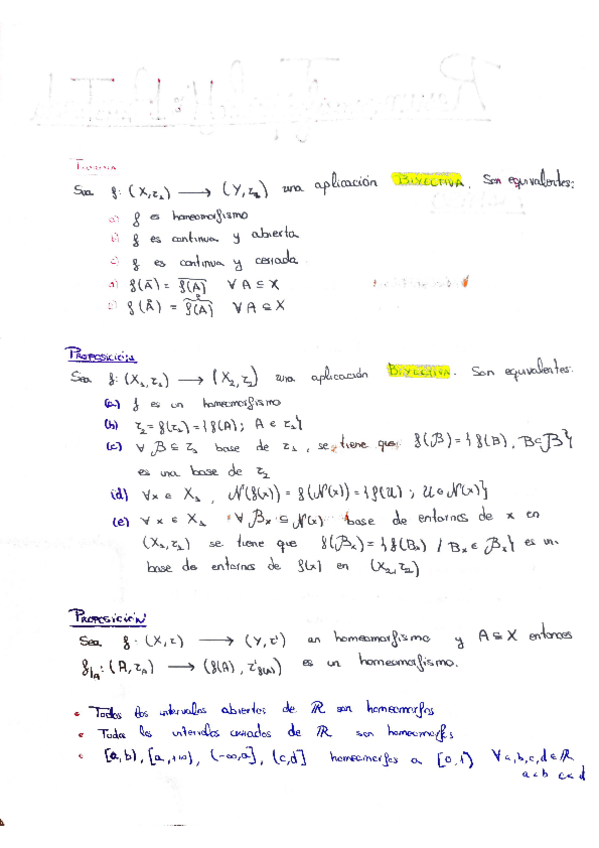 Teorema
Sea f: (X,τ₁) ⟶ (Y,τ₂) una aplicación BIYECTIVA. Son equivalentes:
a) f es homeomorfismo
b) f es continua y abierta
c) f es continua y cerrada
d) f(Ā) = \overline{f(A)} ∀ A ⊆ X
e) f(Å) = \overset{o}{f(A)} ∀ A ⊆ X
PROPOSICIÓN
Sea f: (X₁,τ₁) ⟶ (X₂,τ₂) una aplicación BIYECTIVA. Son equivalentes:
(a) f es un homeomorfismo
(b) τ₂ = f(τ₁) = {f(A); A ∈ τ₁}
(c) ∀ B ⊆ τ₁ base de τ₁, se tiene que f(B) = {f(B), B∈B}
es una base de τ₂
(d) ∀x ∈ X₁, N(f(x)) = f(N(x)) = {f(U); U∈N(x)}
(e) ∀x ∈ X₁ ∀ Bₓ ⊆ N(x) base de entornos de x en
(X₁,τ₁) se tiene que f(Bₓ) = {f(Bₓ) / Bₓ ∈ Bₓ} es un
base de entornos de f(x) en (X₂,τ₂)
PROPOSICIÓN
Sea f: (X,τ) ⟶ (Y,τ') un homeomorfismo y A⊆X entonces
f|A: (A,τA) ⟶ (f(A),τ'f(A)) es un homeomorfismo.
• Todos los intervalos abiertos de ℝ son homeomorfos
• Todos los intervalos cerrados de ℝ son homeomorfos
• [a,b), [a,+∞), (-∞,a], (c,d] homeomorfos a [0,1) ∀a,b,c,d∈ℝ
a<b c<d